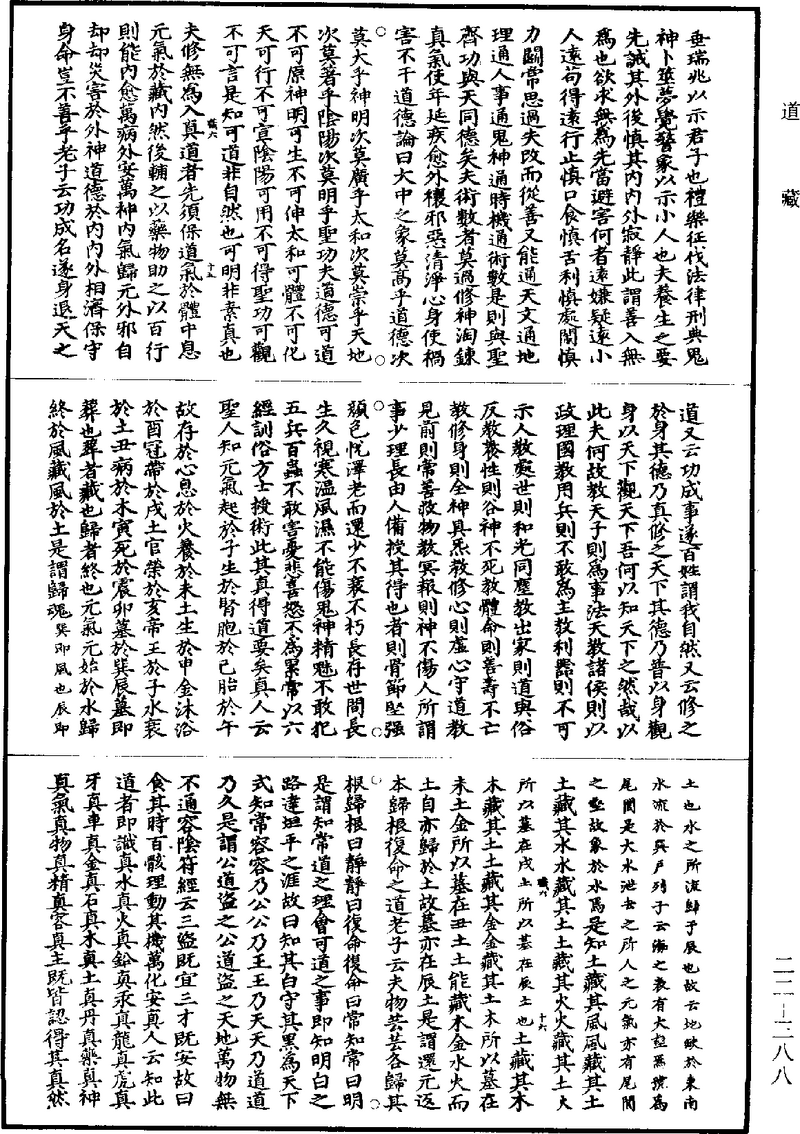 道藏
垂瑞兆以示君子也禮樂征伐法律刑典鬼
神卜筮夢覺警象以示小人也夫養生之要
先誠其外後慎其內內外寂靜此謂善入無
為也欲求無為先當避害何者遠嫌疑遠小
人遠苟得遠行止慎口食慎舌利慎處鬧慎
力鬬常思過失改而從善又能通天文通地
理通人事通鬼神通時機通術數是則與聖
齊功與天同德矣夫術數者莫過修神淘鍊
真氣使年延疾愈外禳邪惡清淨心身使禍
害不干道德論曰大中之象莫高乎道德次
莫大乎神明次莫廣乎太和次莫崇乎天地
次莫著乎陰陽次莫明乎聖功夫道德可道
不可原神明可生不可伸太和可體不可化
天可行不可宣陰陽可用不可得聖功可觀
不可言是知可道非自然也可明非素真也
夫修無為入真道者先須保道氣於體中息
元氣於藏內然後輔之以藥物助之以百行
則能內愈萬病外安萬神內氣歸元外邪自
却却災害於外神道德於內內外相濟保守
身命豈不善乎老子云功成名遂身退天之
道又云功成事遂百姓謂我自然又云修之
於身其德乃真修之天下其德乃普以身觀
身以天下觀天下吾何以知天下之然哉以
此夫何故教天子則為事法天教諸侯則以
政理國教用兵則不敢為主教利器則不可
示人教處世則和光同塵教出家則道與俗
反教養性則谷神不死教體命則善壽不亡
教修身則全神具炁教修心則虛心守道教
見前則常善救物教冥報則神不傷人所謂
事少理長由人備授其得也者則骨節堅强
顏色悅澤老而還少不衰不朽長存世間長
生久視寒溫風濕不能傷鬼神精魅不敢犯
五兵百蟲不敢害憂悲喜怒不為累常以六
經訓俗方士授術此其真得道要矣真人云
聖人知元氣起於子生於腎胞於巳胎於午
故存於心息於火養於未土生於申金沐浴
於酉冠帶於戌土官榮於亥帝王於子水衰
於土丑病於木寅死於震卯墓於巽辰墓即
葬也葬者藏也歸者終也元氣元始於水歸
終於風藏風於土是謂歸魂巽即風也辰即
土也水之所流歸于辰也故云地缺於東南
水流於巽戶列子云海之表有大壑焉號為
尾閭是大水泄去之所人之元氣亦有尾閭
之壑故象於水焉是知土藏其風風藏其土
土藏其水水藏其土土藏其火火藏其土火
所以墓在戌土所以墓在辰土也土藏其木
木藏其土土藏其金金藏其土木所以墓在
未土金所以墓在丑土土能藏木金水火而
土自亦歸於土故墓亦在辰土是謂還元返
本歸根復命之道老子云夫物芸芸各歸其
根歸根曰靜靜曰復命復命曰常知常曰明
是謂知常道之理會可道之事即知明白之
路達坦平之涯故曰知其白守其黑為天下
式知常容容乃公公乃王王乃天天乃道道
乃久是謂公道盜之公道盜之天地萬物無
不通容陰符經云三盜既宜三才既安故曰
食其時百骸理動其機萬化安真人云知此
道者即識真水真火真鉛真汞真龍真虎真
牙真車真金真石真木真土真丹真藥真神
真氣真物真精真客真主既皆認得其真然
二二—三八八